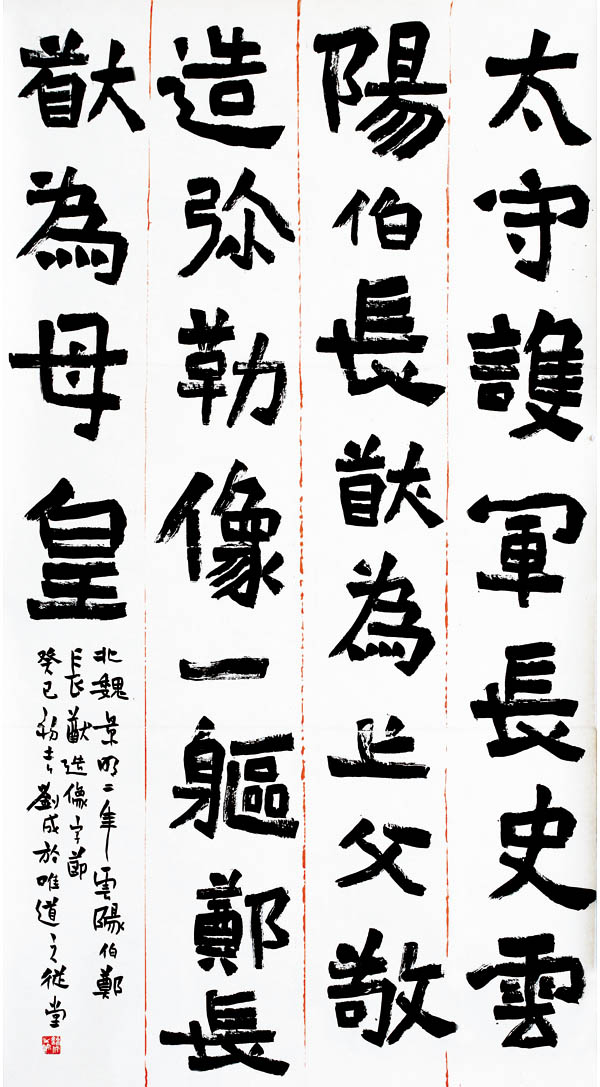 太守護軍長史雲
陽伯長猷為亡父敬
造弥勒像一軀鄭長
猷為母皇
北魏景明二年雲陽伯鄭
長猷造像字節
癸巳初劉成於唯道之從堂